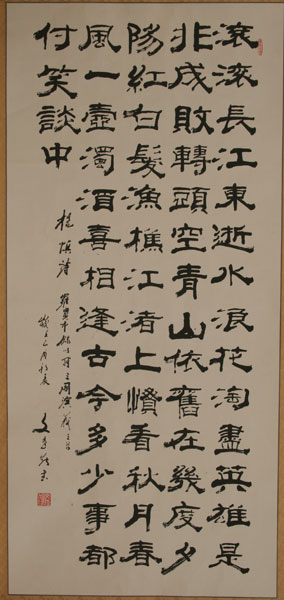 滾滾長江東逝水浪花淘盡英雄是
非成敗轉頭空青山依舊在幾度夕
陽紅白髮漁樵江渚上慣看秋月春
風一壺濁酒喜相逢古今多少事都
付笑談中
楊慎詩